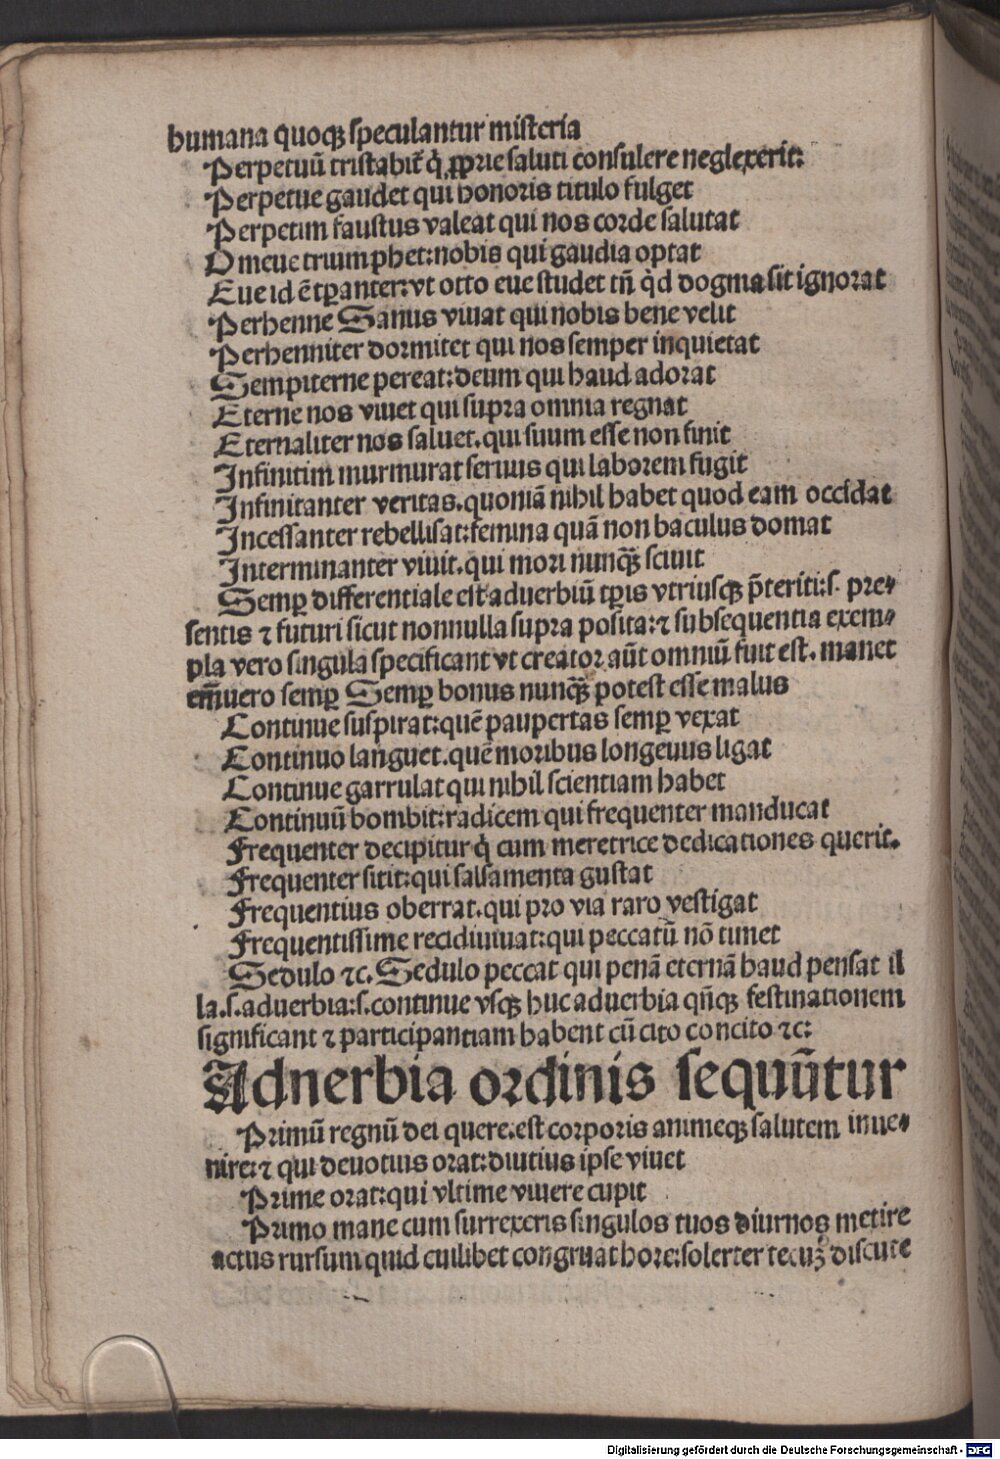 humana quoqꝫ speculantur misteria
Perpetuū tristabit̉ q̇ ꝓprie saluti consulere neglexerit:
Perpetue gaudet qui honoris titulo fulget
Perpetim faustus valeat qui nos corde salutat
O meue triumphet:nobis qui gaudia optat
Eue id ē tꝑanter:vt otto eue studet tn̄ q̇d dogma sit ignorat
Perhenne Sanus viuat qui nobis bene velit
Perhenniter dormitet qui nos semper inquietat
Sempiterne pereat:deum qui haud adorat
Eterne nos viuet qui supra omnia regnat
Eternaliter nos saluet.qui suum esse non finit
Infinitim murmurat seruus qui laborem fugit
Infinitanter veritas.quoniā nihil habet quod eam occidat
Incessanter rebellisat:femina quā non baculus domat
Interminanter viuit.qui mori nunqꝫ̄ sciuit
Semꝑ differentiale est aduerbiū tꝑis vtriusqꝫ p̄teriti:s. pre⸗
sentis ⁊ futuri sicut nonnulla supra posita:⁊ subsequentia exem⸗
pla vero singula specificant vt creator aūt omniū fuit est. manet
em̄uero semꝑ Semꝑ bonus nunqꝫ̄ potest esse malus
Continue suspirat:quē paupertas semꝑ vexat
Continuo languet.quē moribus longeuus ligat
Continue garrulat qui nihil scientiam habet
Continuū bombit:radicem qui frequenter manducat
Frequenter decipitur q̇ cum meretrice dedicationes querit.
Frequenter sitit:qui salsamenta gustat
Frequentius oberrat.qui pro via raro vestigat
Frequentissime recidiuiuat:qui peccatū nō timet
Sedulo ⁊c. Sedulo peccat qui penā eternā haud pensat il
la.s.aduerbia:s.continue vsqꝫ huc aduerbia qn̄qꝫ festinationem
significant ⁊ participantiam habent cū cito concito ⁊c:
Adnerbia ordinis sequūtur
Primū regnū dei quere.est corporis animeqꝫ salutem inue⸗
nire:⁊ qui deuotius orat:diutius ipse viuet
Prime orat:qui vltime viuere cupit
Primo mane cum surrexeris singulos tuos diurnos metire
actus rursum quid cuilibet congruat hore:solerter tecuꝫ discute
Digitalisierung gefördert durch die Deutsche Forschungsgemeinschaft - DFG